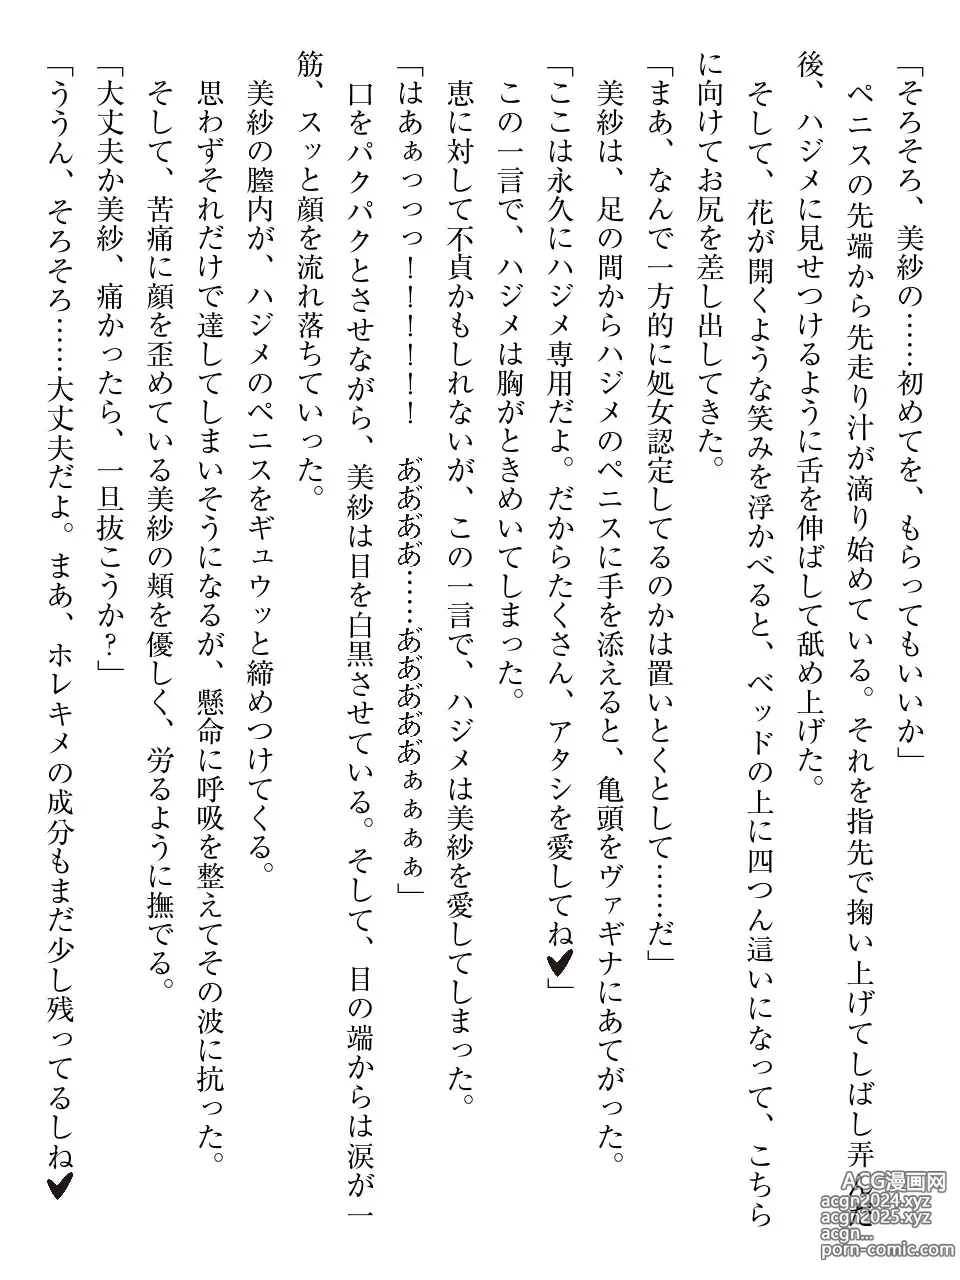 「そろそろ、美紗の……初めてを、もらってもいいか」
ペニスの先端から先走り汁が滴り始めている。それを指先で掬い上げてしばし弄んだ
後、ハジメに見せつけるように舌を伸ばして舐め上げた。
そして、花が開くような笑みを浮かべると、ベッドの上に四つん這いになって、こちら
に向けてお尻を差し出してきた。
「まあ、なんで一方的に処女認定してるのかは置いとくとして……だ」
美紗は、足の間からハジメのペニスに手を添えると、亀頭をヴァギナにあてがった。
「ここは永久にハジメ専用だよ。だからたくさん、アタシを愛してね♥」
この一言で、ハジメは胸がときめいてしまった。
恵に対して不貞かもしれないが、この一言で、ハジメは美紗を愛してしまった。
「はあぁっっっっ！！！！！！　あ゙あ゙あ゙あ゙……あ゙あ゙あ゙あ゙あ゙ぁぁぁぁ」
口をパクパクとさせながら、美紗は目を白黒させている。そして、目の端からは涙が一
筋、スッと顔を流れ落ちていった。
美紗の膣内が、ハジメのペニスをギュウッと締めつけてくる。
思わずそれだけで達してしまいそうになるが、懸命に呼吸を整えてその波に抗った。
そして、苦痛に顔を歪めている美紗の頬を優しく、労るように撫でる。
「大丈夫か美紗、痛かったら、一旦抜こうか？」
「ううん、そろそろ……大丈夫だよ。まあ、ホレキメの成分もまだ少し残ってるしね♥
ACG漫画网
acgn2024.xyz
acgn2025.xyz
acgn...
porn-comic.com